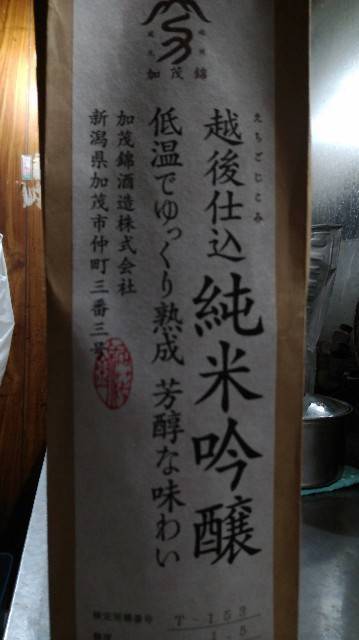 加茂錦
えちごじこみ
越後仕込 純米吟醸
低温でゆっくり熟成 芳醇な味わい
加茂錦酒造株式会社
新潟県加茂市仲町三番三号
T-153
15